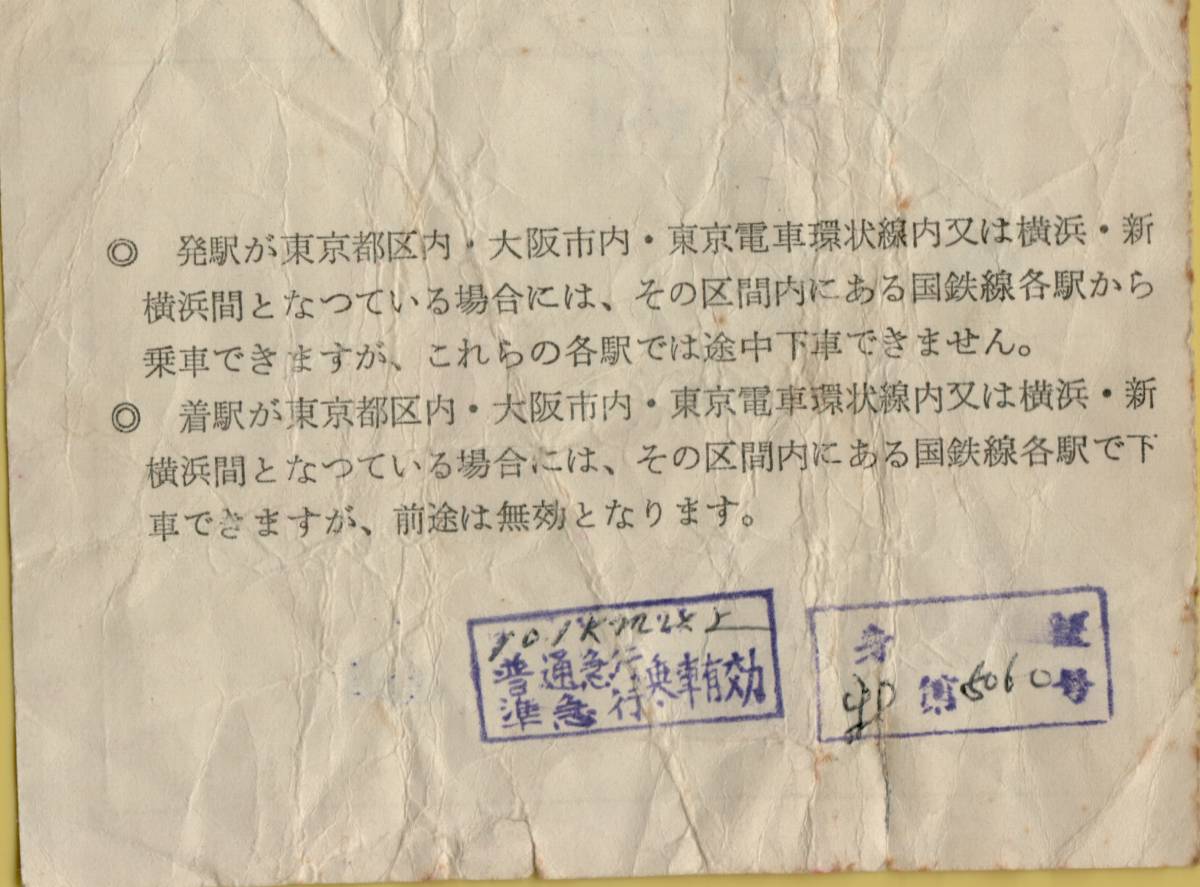 ◎　発駅が東京都区内・大阪市内・東京電車環状線内又は横浜・新
横浜間となつている場合には、その区間内にある国鉄線各駅から
乗車できますが、これらの各駅では途中下車できません。
◎　着駅が東京都区内・大阪市内・東京電車環状線内又は横浜・新
横浜間となつている場合には、その区間内にある国鉄線各駅で下
車できますが、前途は無効となります。
普通急行
準急行
乗車有効
身
第5060号